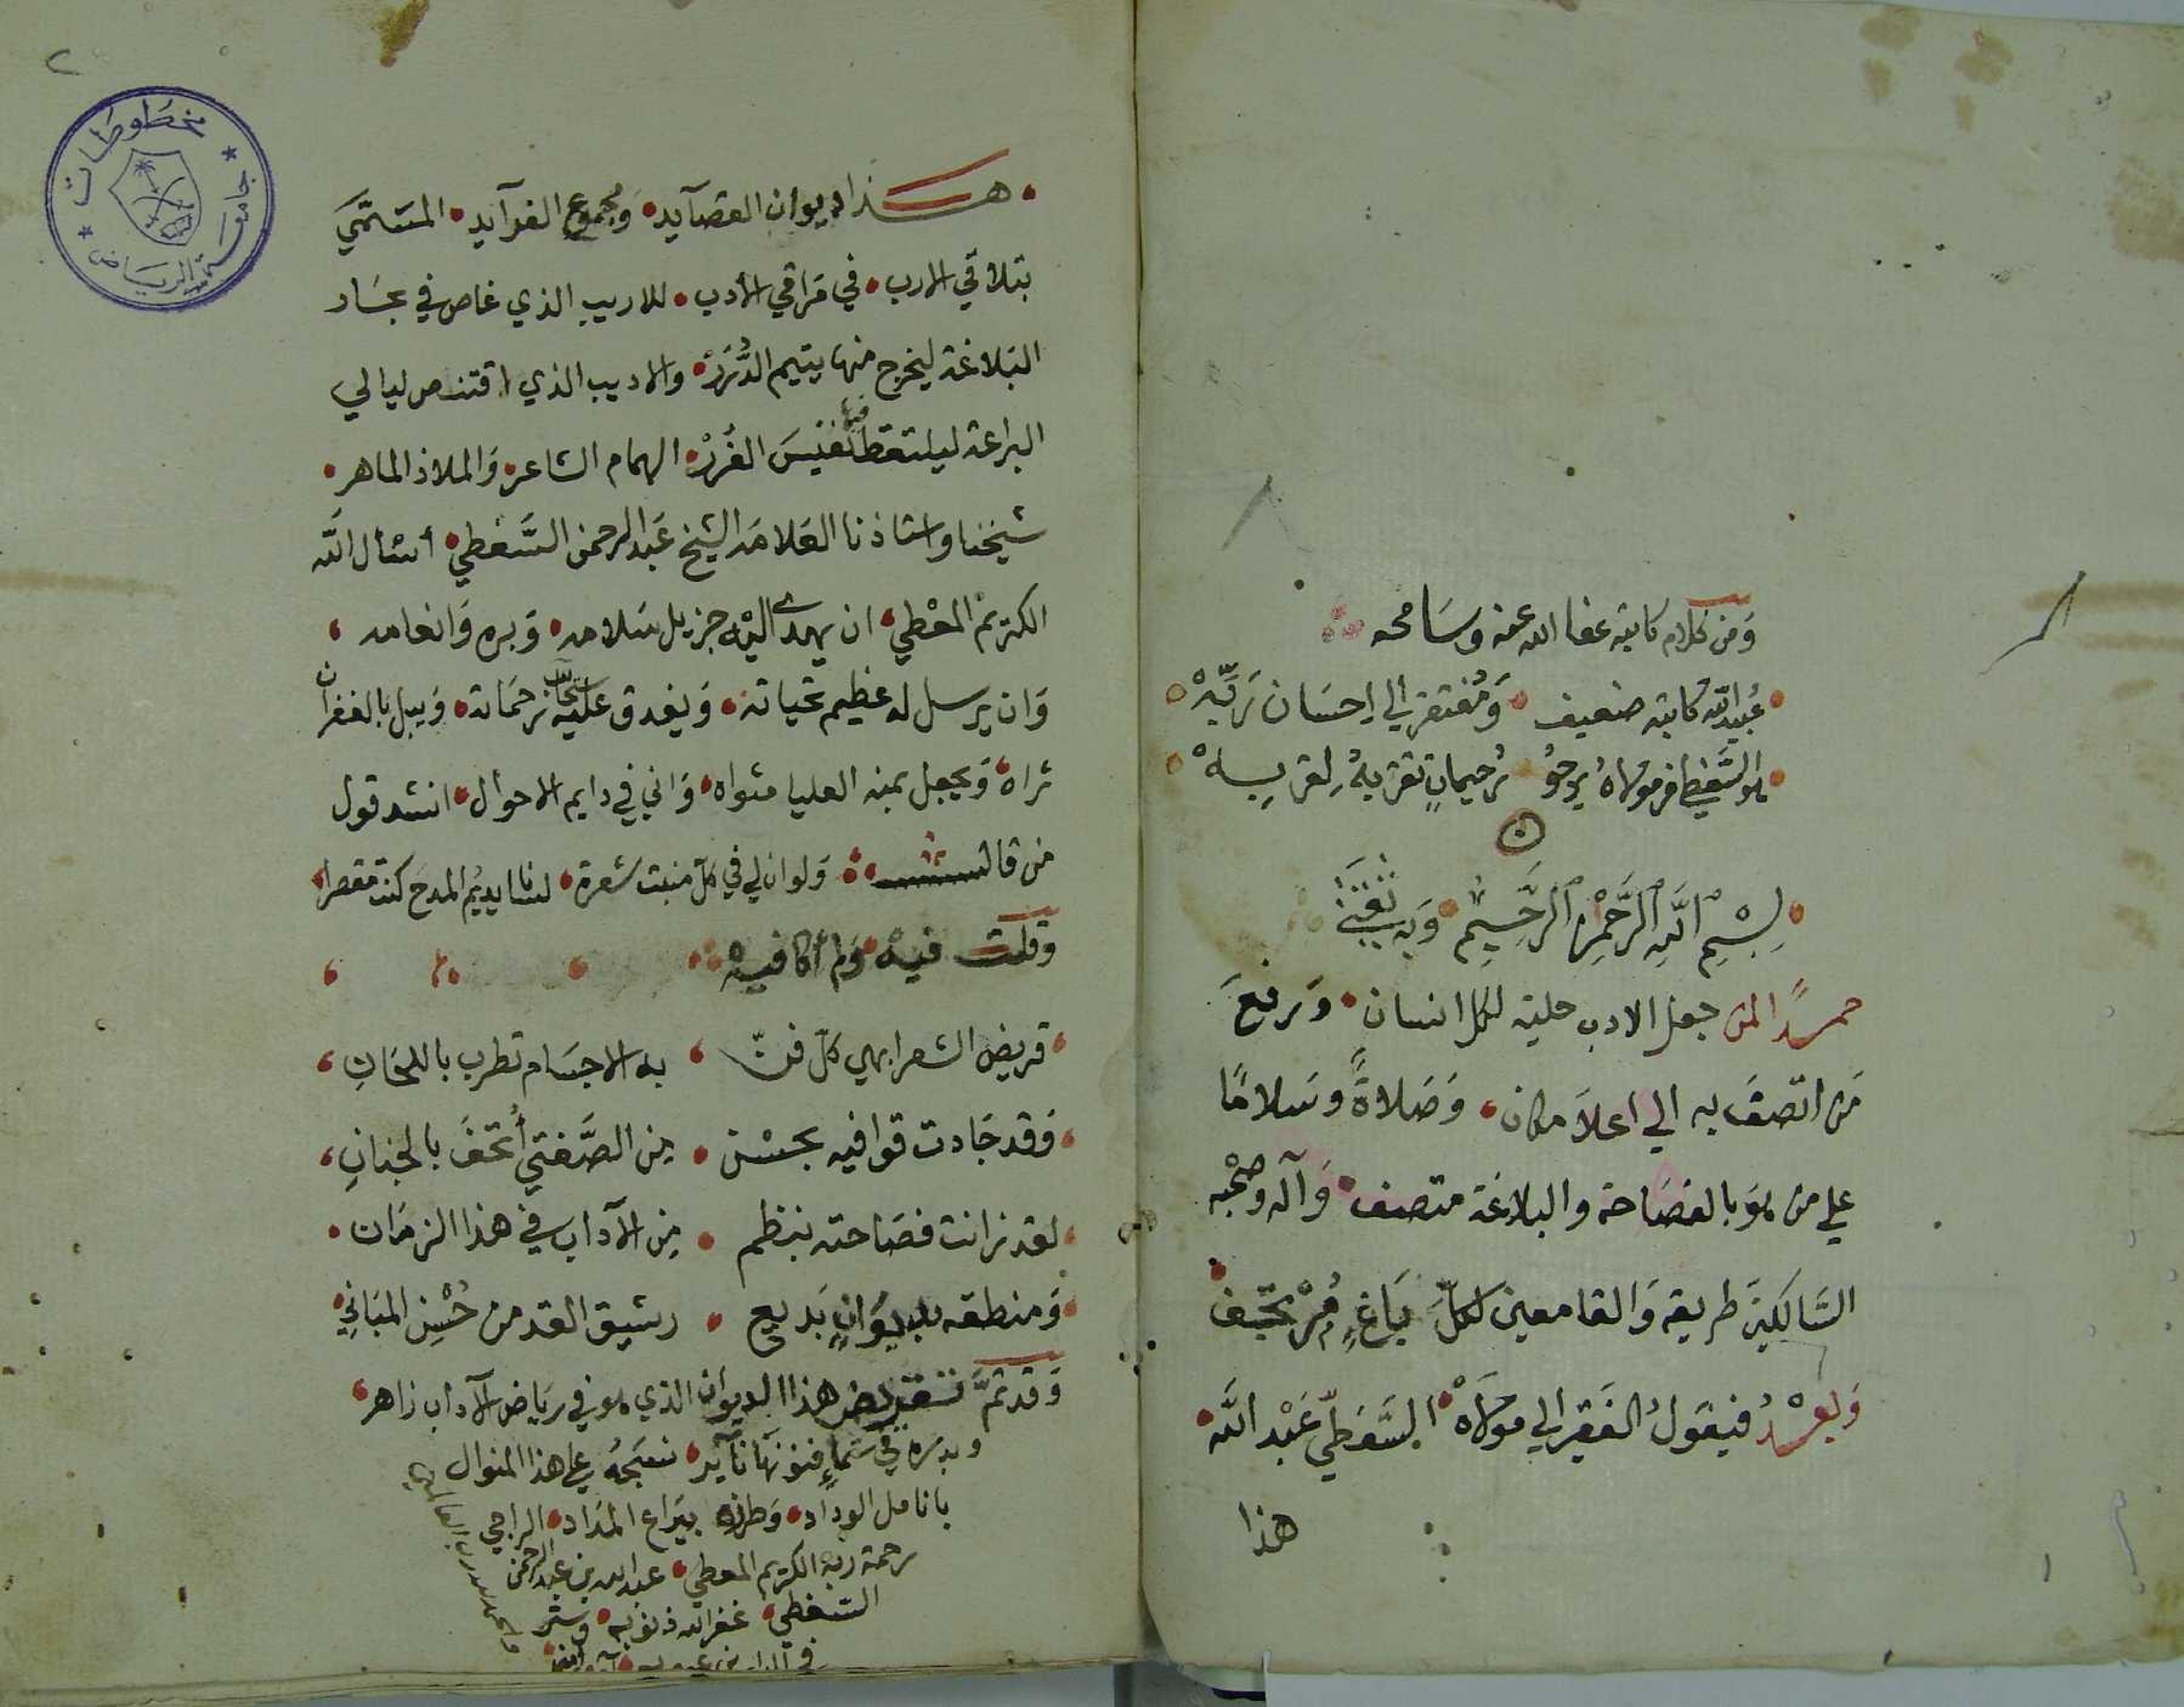 ومن كلام كاتبه عفا الله عنه وسامحه
عُبيد الله كاتبه ضعيف • ومُفتقر الي احسَان رَبِّهْ
هو السَّفطي مولاهُ يرجوُ تُقربهُ لِقربِهْ
بِسْمِ اللَّهِ الرَّحْمٰنِ الرَّحِيمِ • وَبه ثقتي
حمدًا لمن جعل الادب حلية لكل انسان • وَرفعَ
مَن اتصفَ به الي اعلاَ مكان • وَصَلاةً وسَلامًا
علي من هوَ بالفصَاحة والبلاغة متصف • وَآله وصحْبه
السَّالكينَ طريقه وَالقامعين لكلّ بَاغٍ
وَبعْدُ فيقولُ الفَقير الي مولاهْ • السَّفطي عَبْد اللَّه •
هذا
٢
مخطوطات
جامعة الرياض
• هذا ديوان القصآيد • وَمجموع الفرآيد • المسَمَّي
بتلاقي الارب • في مَراقي الأدب • للاريب الذي غاص في بحَار
البَلاغة ليخرج منها يتيم الدُّرَرْ • والاديب الذي اقتنص ليالي
البراعة ليلتقط فيها نفيسَ الغُرَرْ • الهمام الشاعر • وَالملاذ الماهر •
شيخنا واستاذنا العَلامَه الشيخ عَبد الرحمن السَّفطي • أسأل اللَّه
الكريم المعْطي • ان يهدي اليْه جزيل سَلامه • وَبره وَانعامه •
وَان يرسل له عَظيم تحياته • وَيغدق عليه سحآئب رَحمَاته • وَيبل بالغفران
ثراه • وَيجعل بمنه العليا مثواه • وَاني في دايم الاحوال • انشد قول
من قال • وَلوان لي في كلّ منبت شعرة • لسانا يديْم المدحَ كنت مقصرا
وَقلت فيه وَلم أكافيهْ
قريض الشعر ابهي كلّ فنّ • به الاجسَام تطرب باللحَانِ
وَقد جَادت قوافيه بحسْن • مِن الصَّفتي أُتحفَ بالجنانِ
لقد زانت فصَاحته بنظم • مِن الآداب في هذا الزمَان •
وَمنطقه بديوَانٍ بَديع • رشيق القد من حُسْن المبَانِي
وَقد تمَّ تقريض هذا الديوان الذي هو في رياض الآداب زاهر •
وبدره في سَمآءِ فنونهَا نآير • نسَجهُ علي هذا المنوال
بانامل الوداد • وَطرزه بيَراع المدَاد • الراجي
رحمة ربه الكريم المعطي • عبد الله بن عبد الرحمن
السَّفطي • غفر الله ذنوبه • وستر
في الدارين عيوبه • آمين
والحمد لله رب العالمين